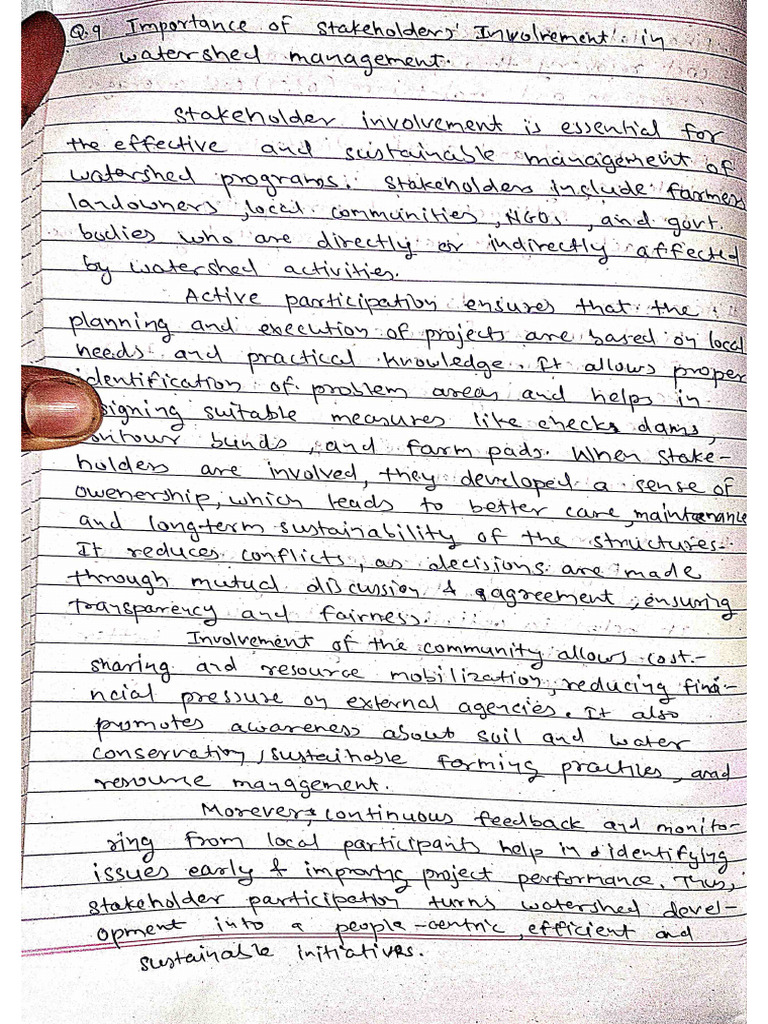 Q.9 Importance of stakeholders' Involvement in
watershed management.
Stakeholder involvement is essential for
the effective and sustainable management of
watershed programs. Stakeholders include farmers
landowners, local communities, NGOs, and govt.
bodies who are directly or indirectly affected
by watershed activities.
Active participation ensures that the
planning and execution of projects are based on local
needs and practical knowledge. It allows proper
identification of problem areas and helps in
signing suitable measures like checks dams,
ontour bunds, and farm pads. When stake-
holders are involved, they developed a sense of
owenership, which leads to better care, maintenance
and long-term sustainability of the structures.
It reduces conflicts, as decisions are made
through mutual discussion & agreement, ensuring
transparency and fairness.
Involvement of the community allows cost-
sharing and resource mobilization, reducing fina-
ncial pressure on external agencies. It also
promotes awareness about soil and water
conservation, sustainable forming practices, and
resource management.
Morever, continuous feedback and monito-
ring from local participants help in identifying
issues early & improving project performance. Thus,
stakeholder participation turns watershed devel-
opment into a people-centric, efficient and
sustainable initiatives.